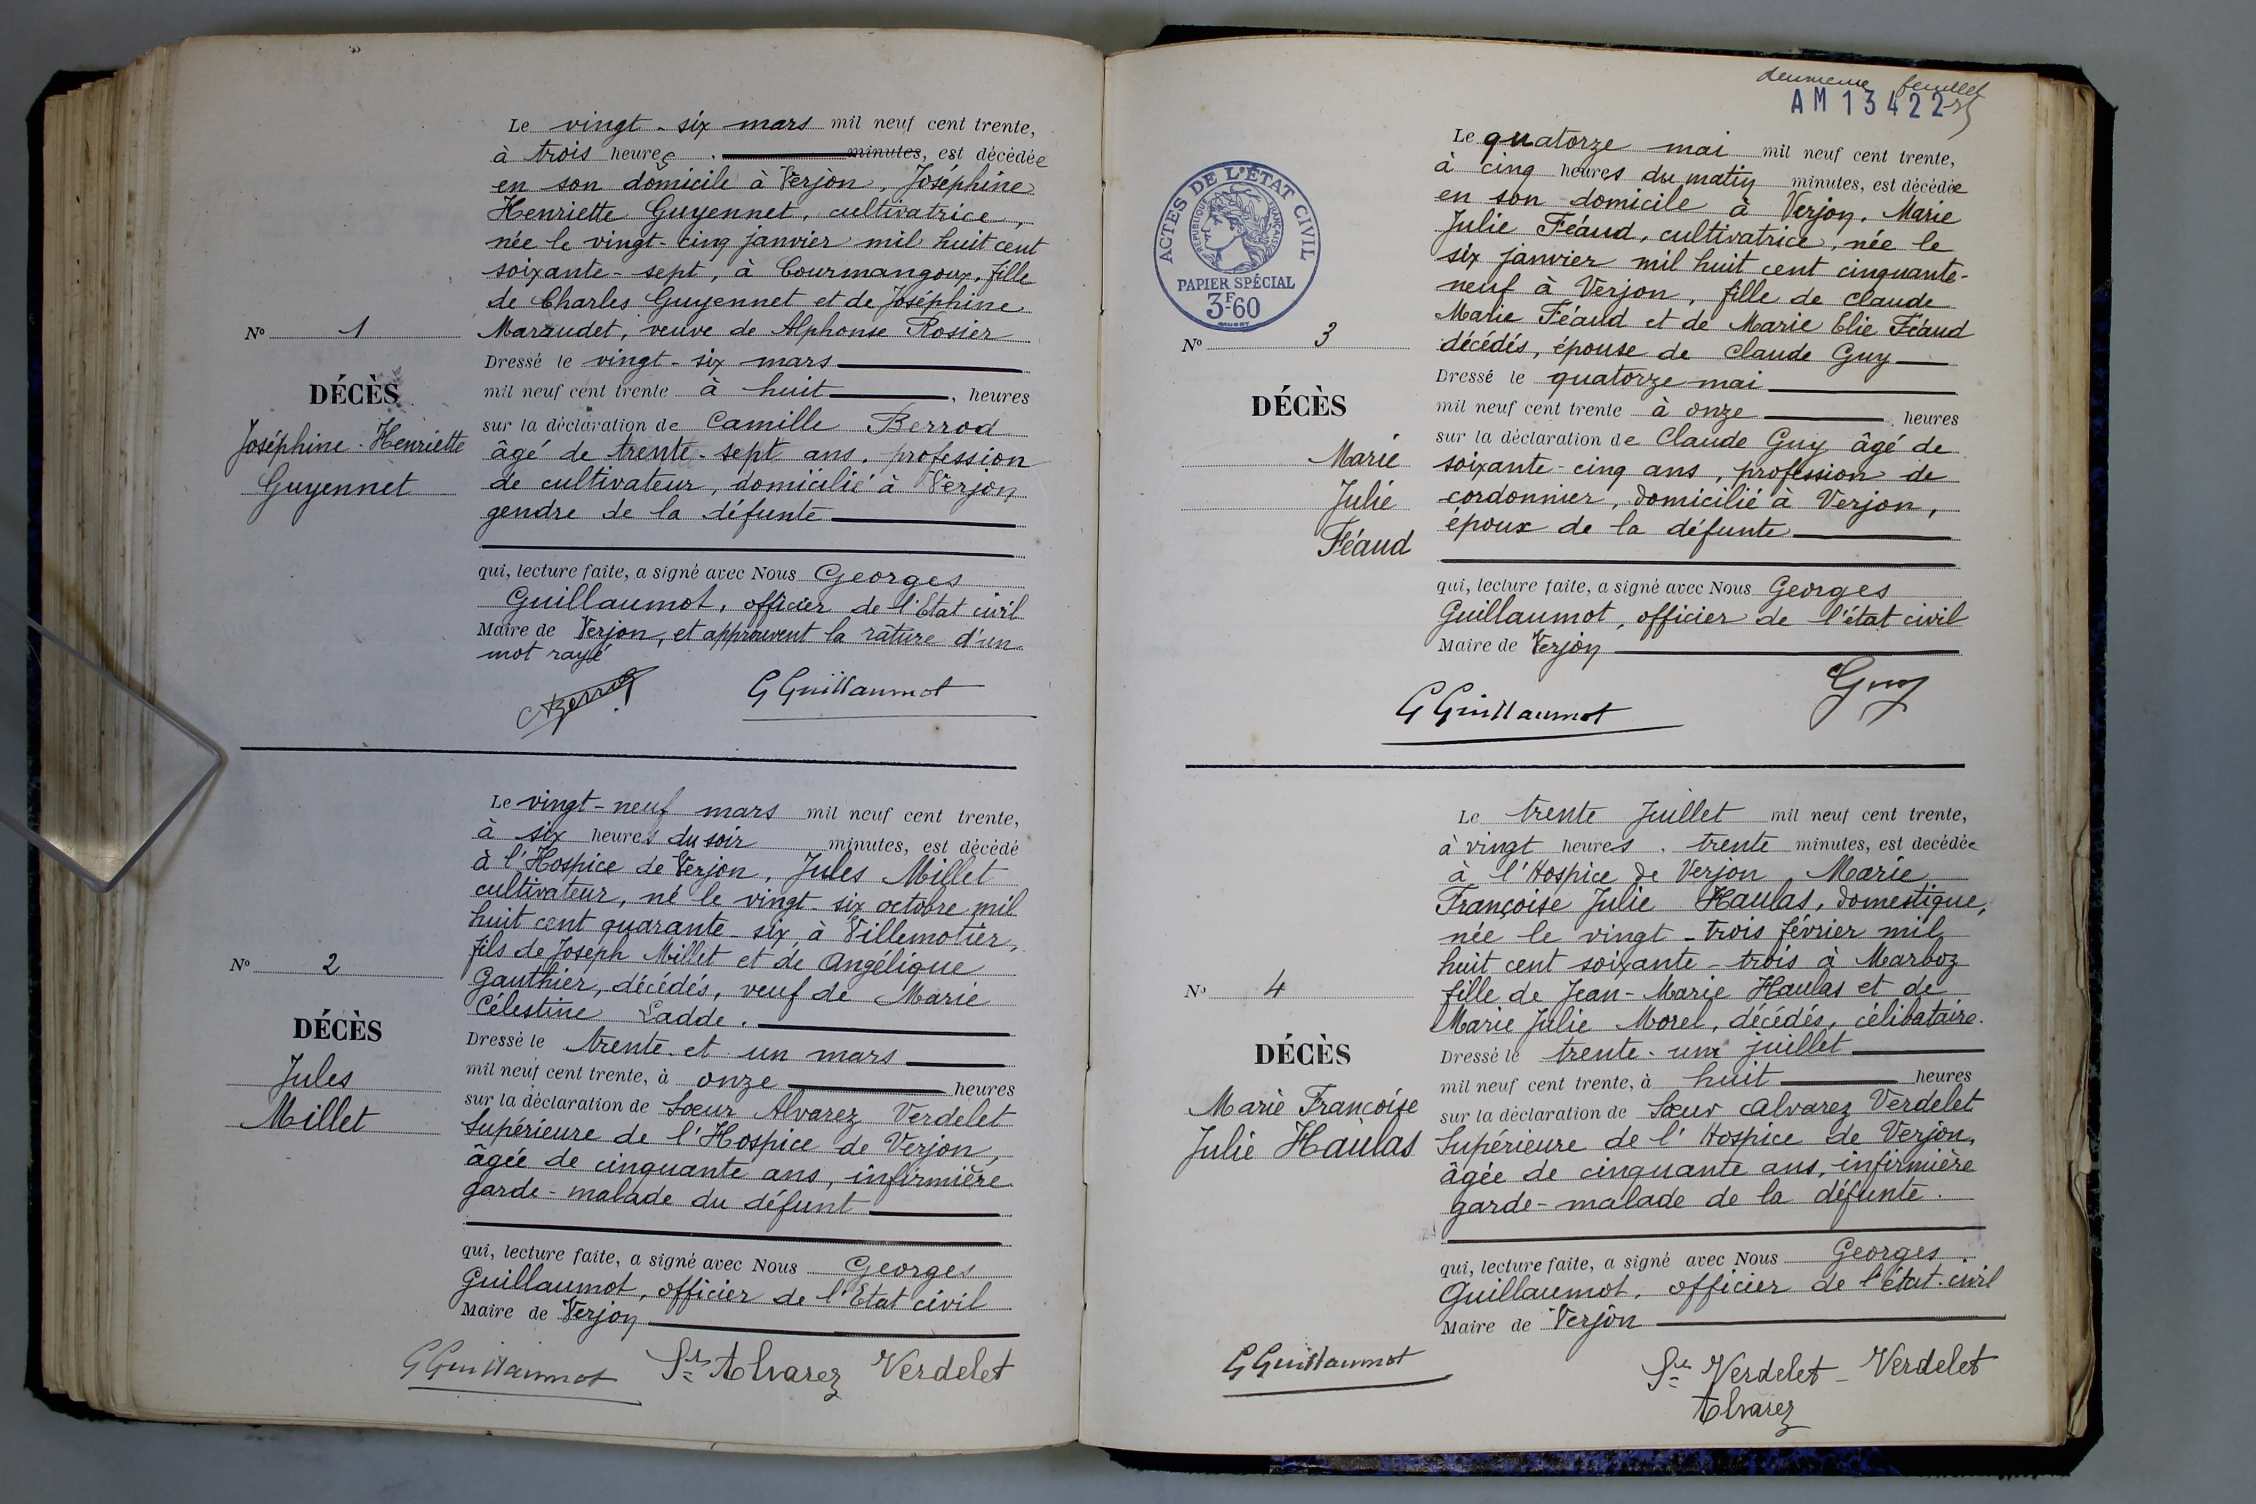 Le vingt-six mars mil neuf cent trente,
à trois heures . minutes, est décédée
en son domicile à Verjon, Joséphine
Henriette Guyennet, cultivatrice,
née le vingt-cinq janvier mil huit cent
soixante-sept, à Courmangoux, fille
de Charles Guyennet et de Joséphine
Maraudet, veuve de Alphonse Rosier
Dressé le vingt-six mars
mil neuf cent trente à huit, heures
sur la déclaration de Camille Berrod
âgé de trente-sept ans, profession
de cultivateur, domicilié à Verjon
gendre de la défunte
qui, lecture faite, a signé avec Nous Georges
Guillaumot, officier de l'Etat civil
Maire de Verjon, et approuvent la râture d'un
mot rayé
Berrod
G Guillaumot
N° 1
DÉCÈS
Joséphine-Henriette
Guyennet
Le vingt-neuf mars mil neuf cent trente,
à six heures du soir minutes, est décédé
à l'Hospice de Verjon, Jules Millet
cultivateur, né le vingt-six octobre mil
huit cent quarante-six à Villemotier,
fils de Joseph Millet et de Angélique
Gauthier, décédés, veuf de Marie
Célestine Ladde.
Dressé le trente et un mars
mil neuf cent trente, à onze heures
sur la déclaration de Sœur Alvarez Verdelet
Supérieure de l'Hospice de Verjon,
âgée de cinquante ans, infirmière
garde-malade du défunt
qui, lecture faite, a signé avec Nous Georges
Guillaumot, officier de l'Etat civil
Maire de Verjon
G Guillaumot Sr Alvarez Verdelet
N° 2
DÉCÈS
Jules
Millet
deuxième feuillet
AM 13422
ACTES DE L'ÉTAT CIVIL
RÉPUBLIQUE FRANÇAISE
PAPIER SPÉCIAL
3F-60
Le quatorze mai mil neuf cent trente,
à cinq heures du matin minutes, est décédée
en son domicile à Verjon, Marie
Julie Féaud, cultivatrice, née le
six janvier mil huit cent cinquante-
neuf à Verjon, fille de Claude
Marie Féaud et de Marie Elie Féaud
décédés, épouse de Claude Guy
Dressé le quatorze mai
mil neuf cent trente à onze heures
sur la déclaration de Claude Guy âgé de
soixante-cinq ans, profession de
cordonnier, domicilié à Verjon,
époux de la défunte
qui, lecture faite, a signé avec Nous Georges
Guillaumot, officier de l'état civil
Maire de Verjon
G Guillaumot
Guy
N° 3
DÉCÈS
Marie
Julie
Féaud
Le trente Juillet mil neuf cent trente,
à vingt heures . trente minutes, est décédée
à l'Hospice de Verjon Marie
Françoise Julie Haulas, domestique,
née le vingt-trois février mil
huit cent soixante-trois à Marboz
fille de Jean-Marie Haulas et de
Marie Julie Morel, décédés, célibataire.
Dressé le trente-un juillet
mil neuf cent trente, à huit heures
sur la déclaration de Sœur Alvarez Verdelet
Supérieure de l'Hospice de Verjon,
âgée de cinquante ans, infirmière
garde-malade de la défunte.
qui, lecture faite, a signé avec Nous Georges
Guillaumot, officier de l'état-civil
Maire de Verjon
G Guillaumot
Sr Verdelet - Verdelet
Alvarez
N° 4
DÉCÈS
Marie Françoise
Julie Haulas